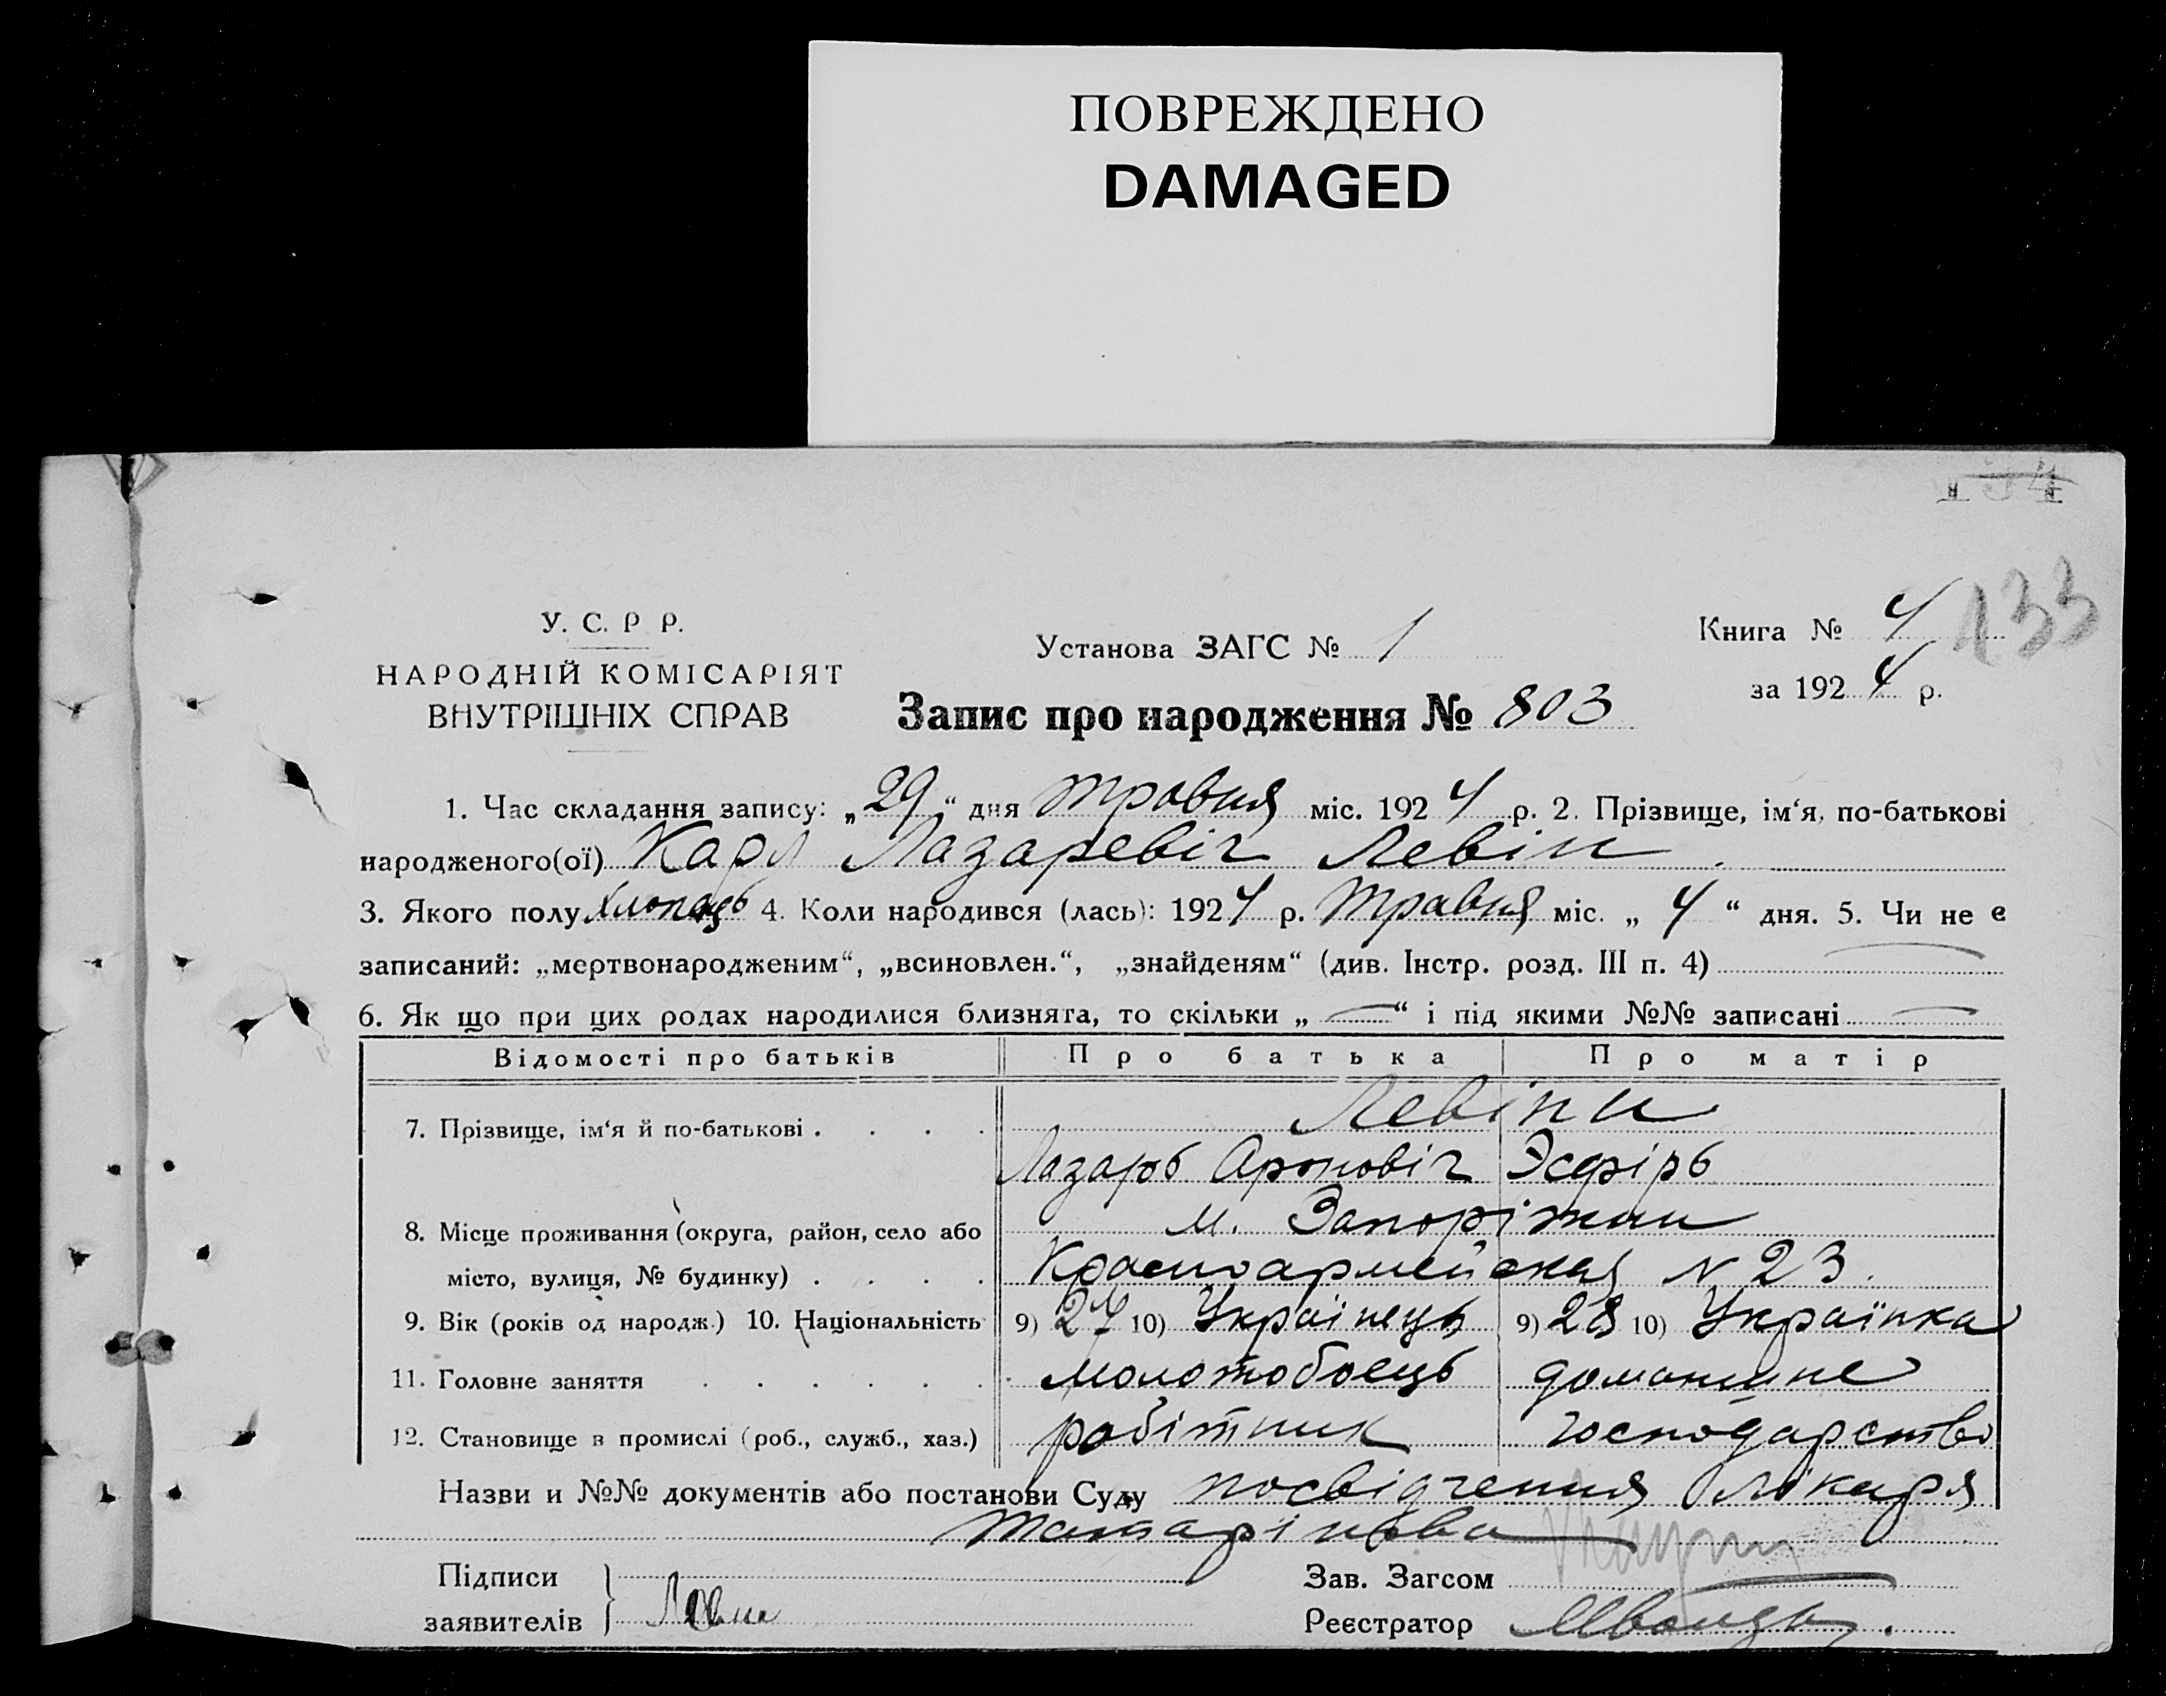 ПОВРЕЖДЕНО
DAMAGED
133
У. С. Р Р.
НАРОДНІЙ КОМІСАРІЯТ
ВНУТРІШНІХ СПРАВ
Установа ЗАГС № 1
Книга № 4
за 1924 р.
Запис про народження № 803
1. Час складання запису: „29“ дня травня міс. 1924 р. 2. Прізвище, ім‘я, по-батькові
народженого(ої) Карл Лазаревіч Левін.
3. Якого полу хлопець 4. Коли народився (лась): 1924 р. травня міс. „4“ дня. 5. Чи не є
записаний: „мертвонародженим“, „всиновлен.“, „знайденям“ (див. Інстр. розд. III п. 4) —
6. Як що при цих родах народилися близнята, то скільки „—“ і під якими №№ записані —
Відомості про батьків Про батька Про матір
7. Прізвище, ім‘я й по-батькові . . . . Левіни
Лазарь Ароновіч Эсфірь
8. Місце проживання (округа, район, село або м. Запоріжжи
місто, вулиця, № будинку) . . . . Красноармейская N 23.
9. Вік (років од народж.) 10. Національність 9) 27 10) Українець 9) 28 10) Українка
11. Головне заняття . . . . . . молотобоець домашне
12. Становище в промислі (роб., служб., хаз.) робітник господарство
Назви и №№ документів або постанови Суду посвідчення лікаря
Татарінова
Підписи
заявителів } Левин
Зав. Загсом
Реєстратор